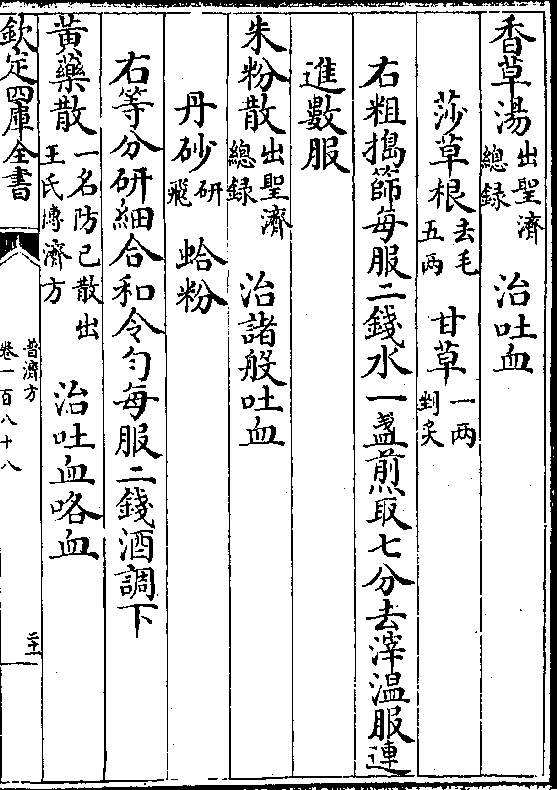 香草湯出聖濟總録　治吐血
莎草根去毛五兩　甘草一兩剉炙
右粗搗篩每服二錢水一盞煎取七分去滓温服連
進數服
朱粉散出聖濟總録　治諸般吐血
丹砂研飛　蛤粉
右等分研細合和令勻每服二錢酒調下
黄藥散一名防己散出王氏博濟方　治吐血咯血
欽定四庫全書
普濟方
卷一百八十八
二十一